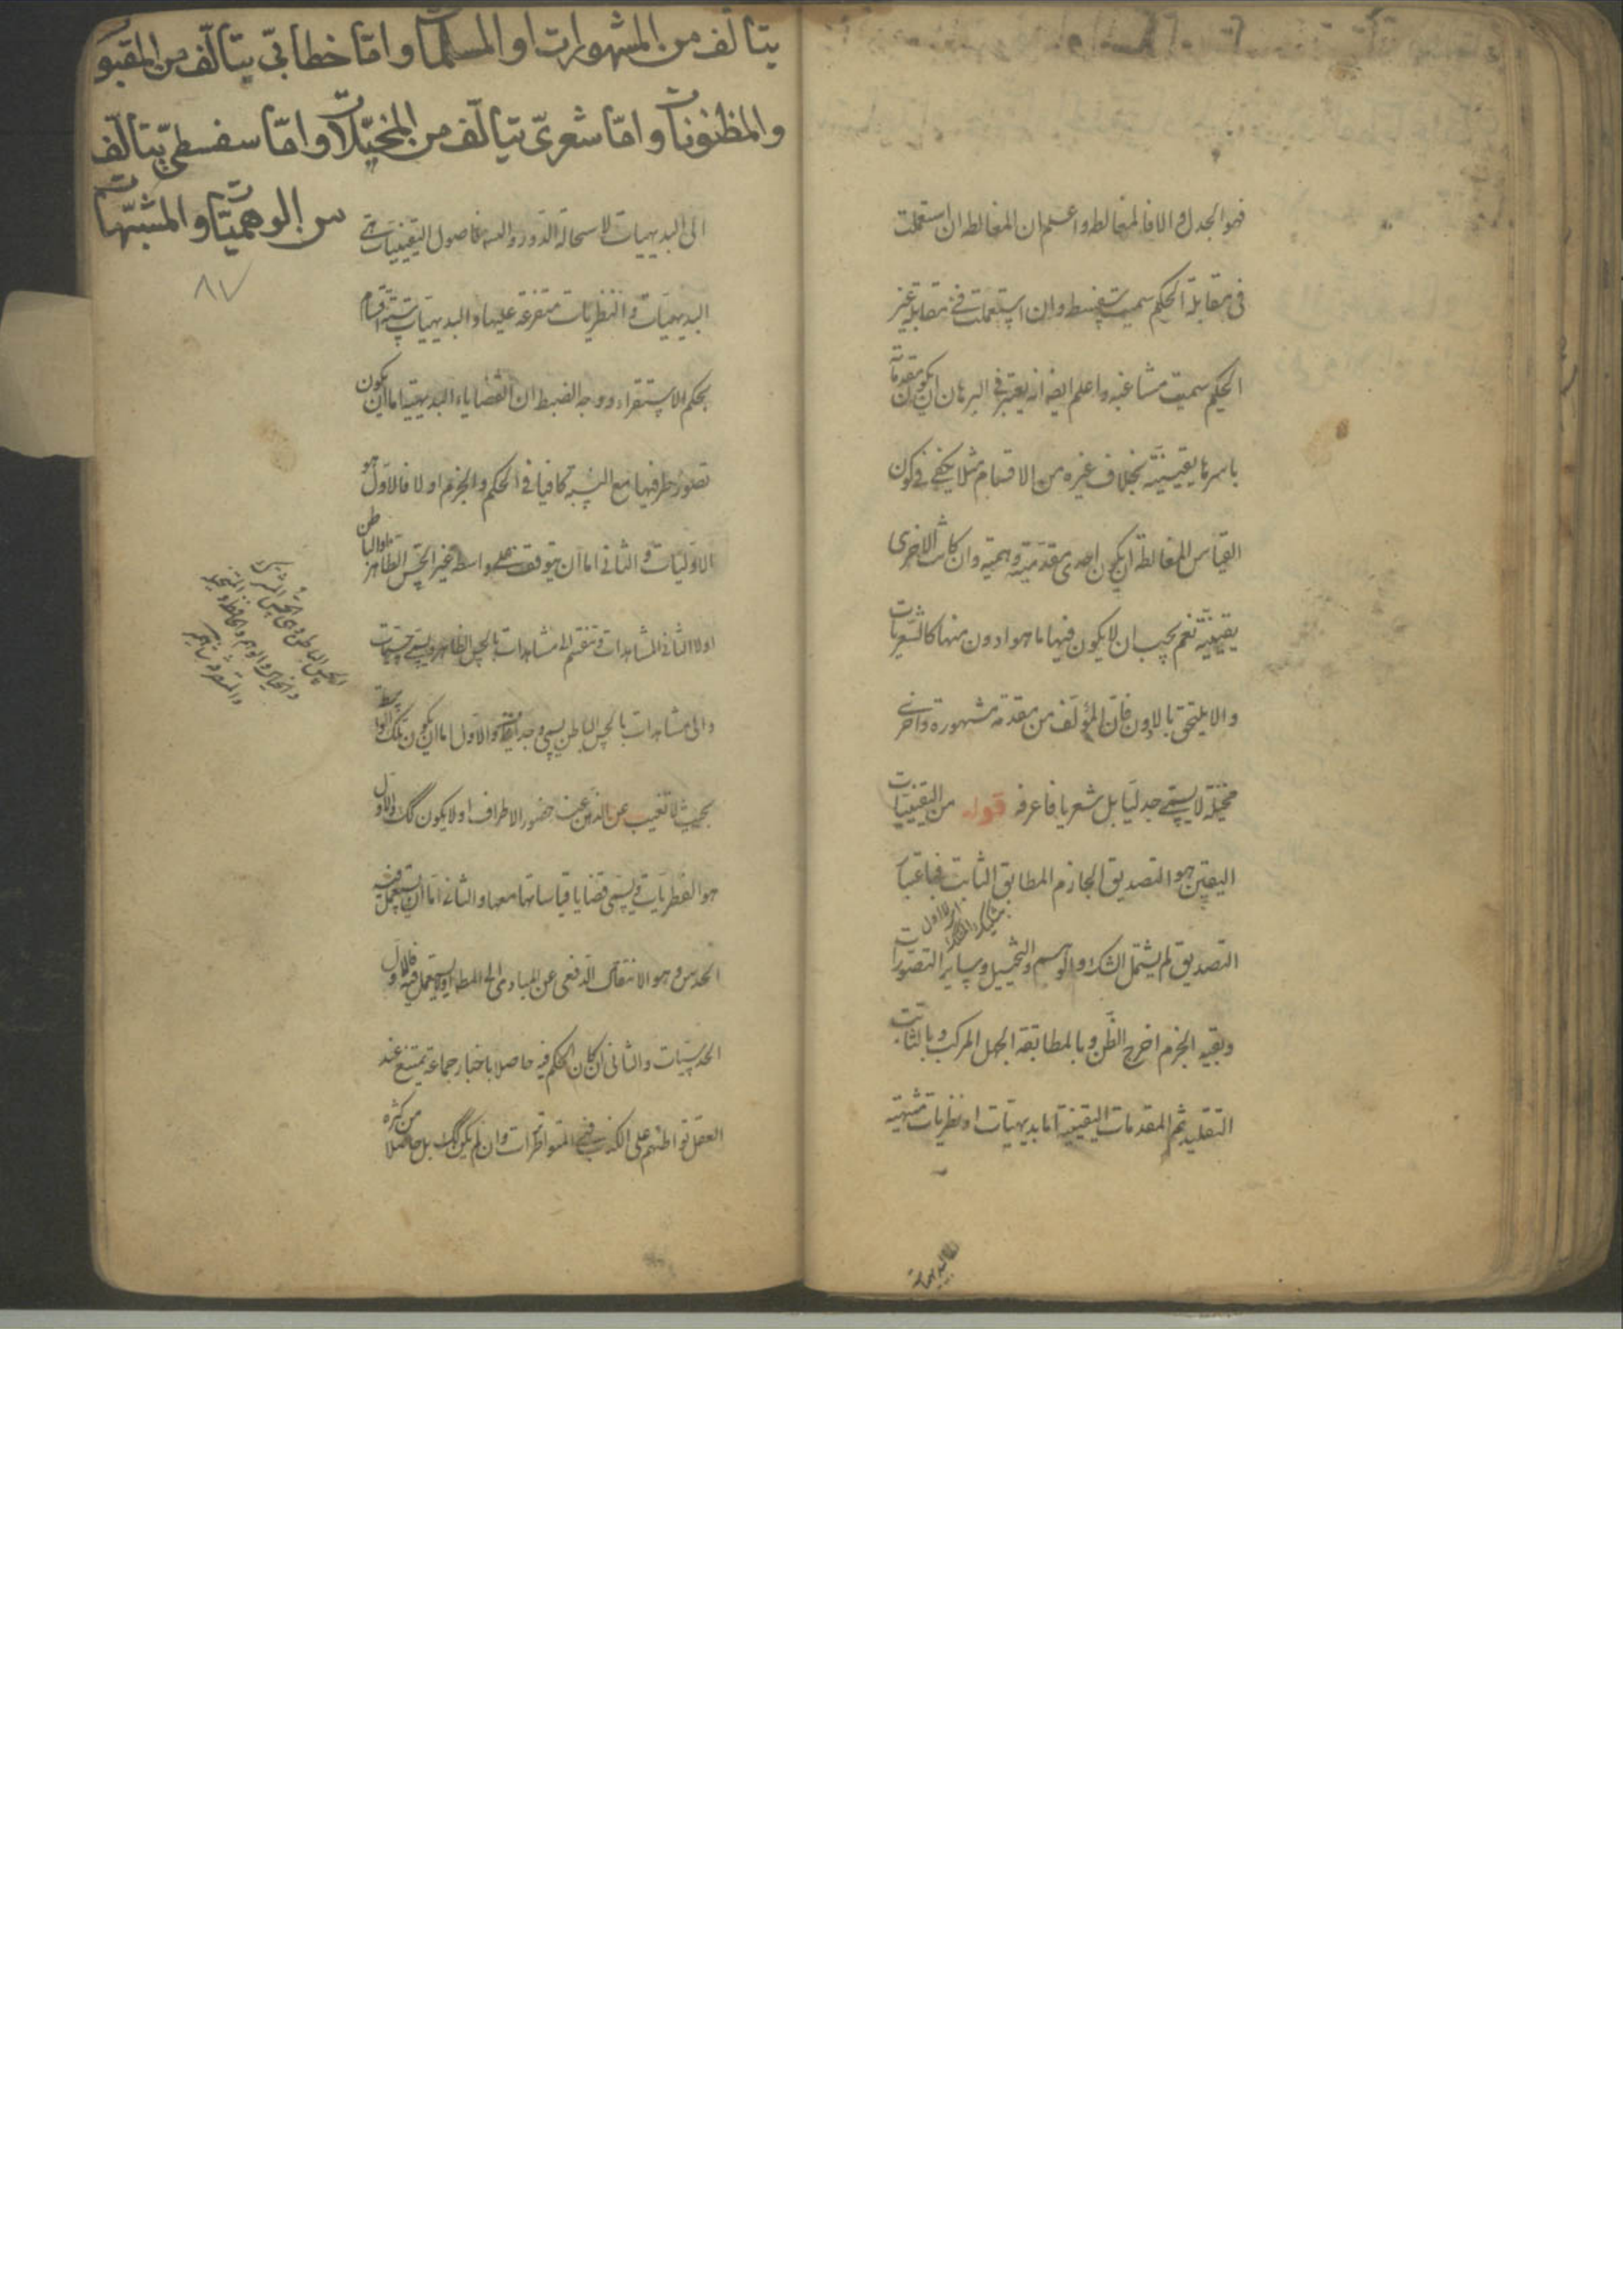 فهو الجدل والا فالمغالطة واعلم ان المغالطة ان استعملت
فى مقابلة الحكيم سميت سفسطة وان استعملت فى مقابلة غير
الحكيم سميت مشاغبة واعلم ايضا انه يعتبر فى البرهان ان يكون مقدماته
باسرها يقينية بخلاف غيره من الاقسام مثلا يكفى فى كون
القياس المغالطة ان يكون احدى مقدمتيه وهمية وان كانت الاخرى
يقينية نعم يجب ان لا يكون فيها ما هو ادون منها كالشعريات
والا يلتحق بالادون فان المؤلف من مقدمة مشهورة واخرى
مخيلة لا يسمى جدليا بل شعريا فاعرفه قوله من اليقينيات
اليقين هو التصديق الجازم المطابق الثابت فباعتبار
التصديق لم يشتمل الشك والوهم والتخييل وساير التصورات
وبقيد الجزم اخرج الظن وبالمطابقة الجهل المركب وبالثابت
التقليد ثم المقدمات اليقينية اما بديهيات او نظريات منتهية
يتألف من المشهورات او المسلمات واما خطابى يتألف من المقبولات
والمظنونات واما شعرى يتألف من المخيلات واما سفسطى يتألف
من الوهميات والمشبهات
٨٧
الى البديهيات لاستحالة الدور والتسـ فاصول اليقينيات هى
البديهيات والنظريات متفرعة عليها والبديهيات ستة اقسام
بحكم الاستقراء ووجه الضبط ان القضايا البديهية اما ان يكون
تصور طرفيها مع النسبة كافيا فى الحكم والجزم او لا فالاول هو
الاوليات والثانى اما ان يتوقف على واسطة غير الحس الظاهر والباطن
او لا الثانى المشاهدات وتنقسم الى مشاهدات بالحس الظاهر ويسمى حسيات
والى مشاهدات بالحس الباطن يسمى وجدانيات والاول اما ان يكون تلك الواسطة
بحيث لا تغيب عن الذهن عند حضور الاطراف او لا يكون كك والاول
هو الفطريات ويسمى قضايا قياساتها معها والثانى اما ان يستعمل فيه
الحدس وهو الانتقال الدفعى عن المبادى الى المطـ او لا يستعمل فيه فالاول
الحدسيات والثانى ان كان الحكم فيه حاصلا باخبار جماعة يمتنع عند
العقل تواطئهم على الكذب فهى المتواترات وان لم يكن كك بل حاصلا من كثرة